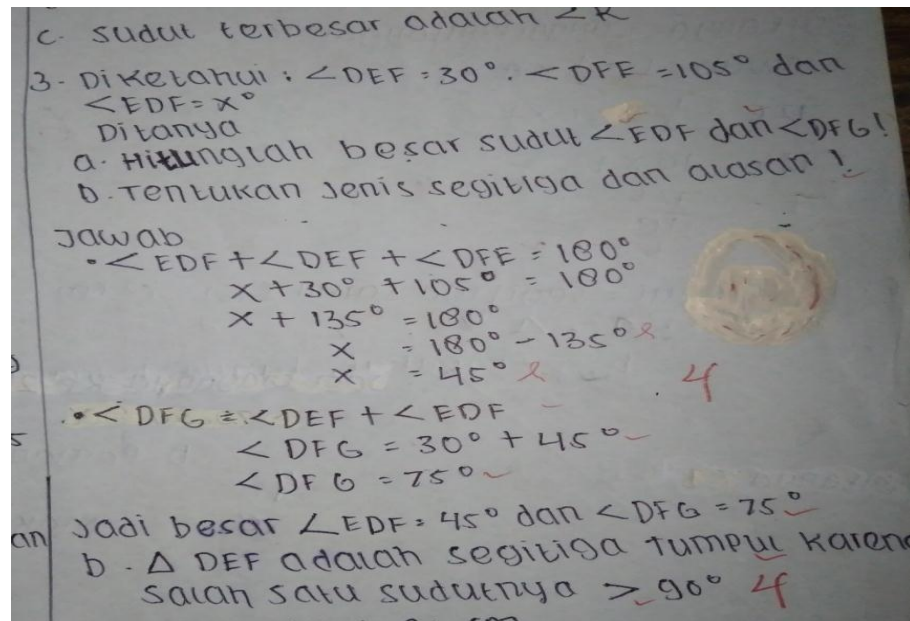 c. sudut terbesar adalah <K
3. Diketahui : <DEF = 30°. <DFE = 105° dan
<EDF = x°
Ditanya
a. Hitunglah besar sudut <EDF dan <DFG!
b. Tentukan jenis segitiga dan alasan!
Jawab
• <EDF + <DEF + <DFE = 180°
x + 30° + 105° = 180°
x + 135° = 180°
x = 180° - 135°
x = 45°
4
• <DFG = <DEF + <EDF
<DFG = 30° + 45°
<DFG = 75°
Jadi besar ∠EDF = 45° dan <DFG = 75°
an
b. △ DEF adalah segitiga tumpul karena
salah satu sudutnya > 90° 4